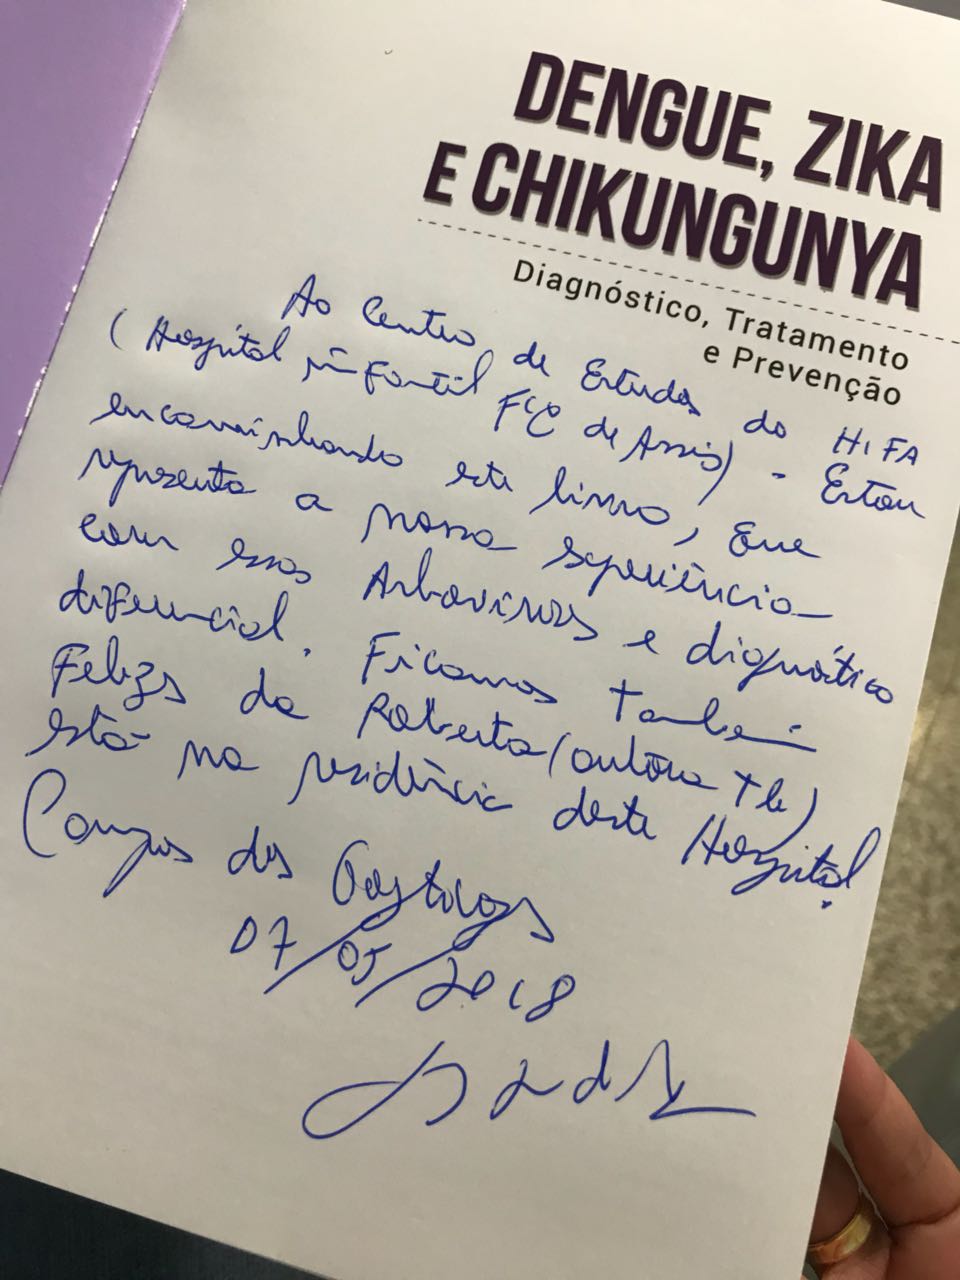 DENGUE, ZIKA
E CHIKUNGUNYA
Diagnóstico, Tratamento
e Prevenção
Ao Centro de Estudos do HIFA
(Hospital infantil Fco de Assis) - Estou
encaminhando este livro, que
representa a nossa experiência
com essas Arboviroses e diagnóstico
diferencial. Ficamos também
Felizes da Roberta (autora tb)
está na residência deste Hospital.
Campos dos Goytacazes
07/05/2018